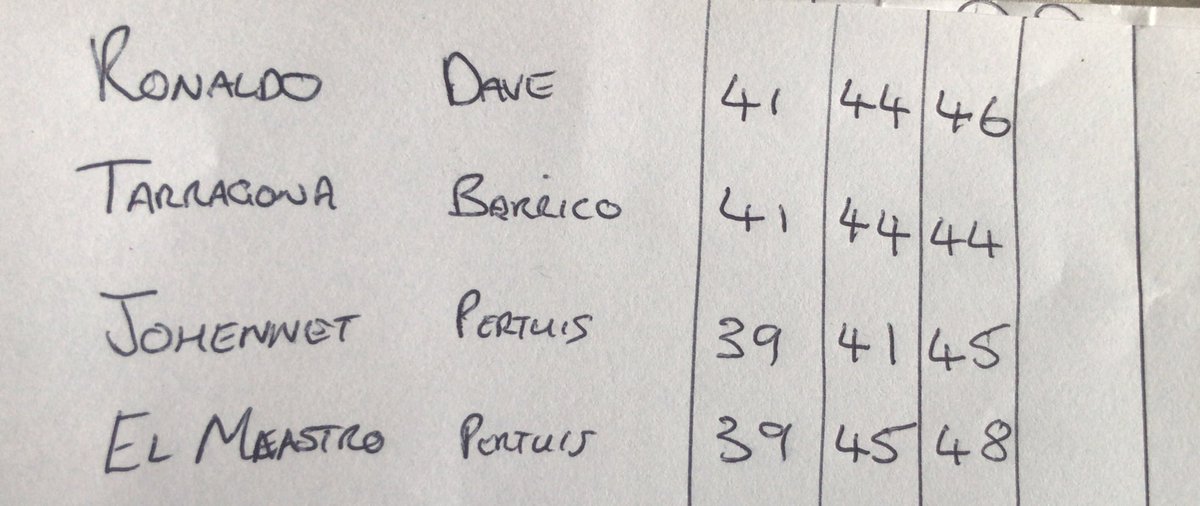 RONALDO DAVE 41 44 46
TARRAGONA BARRICO 41 44 44
JOHENNET PERTUIS 39 41 45
EL MAASTRO PERTUIS 39 45 48